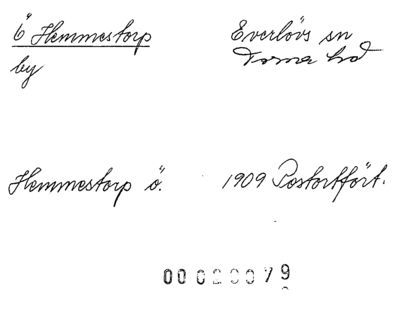 Ö Hemmestorp
by
Everlövs sn
Torna hd
Hemmestorp ö.
1909 Postortfört.
00020079